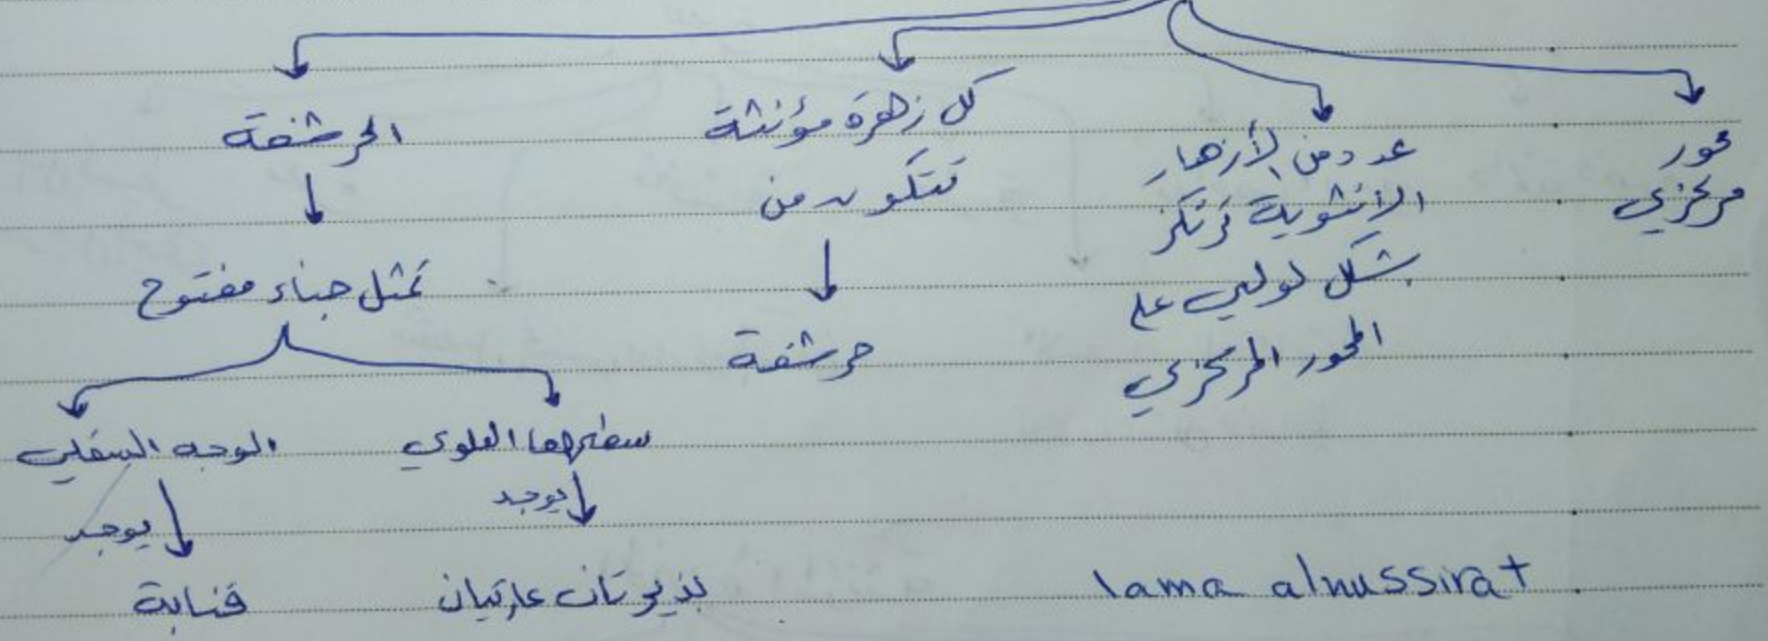 محور
مركزي
عدد من الأزهار
الانثوية ترتكز
بشكل لولبي على
المحور المركزي
كل زهرة مؤنثة
تتكون من
حرشفة
الحرشفة
تمثل خباء مفتوح
سطحها العلوي
يوجد
بذيرتان عاريتان
الوجه السفلي
يوجد
قنابة
lama alnussirat